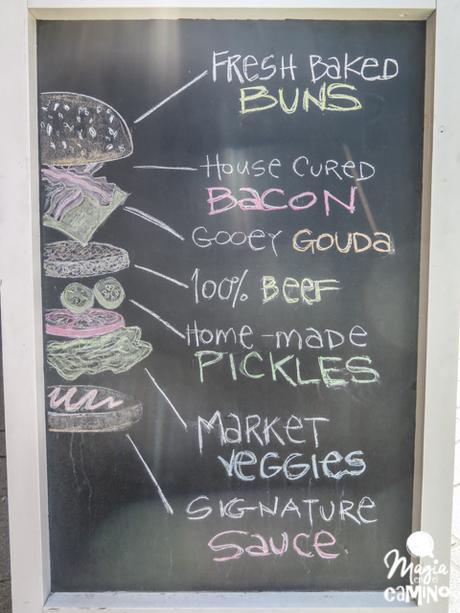 Fresh Baked
Buns
House Cured
Bacon
Gooey Gouda
100% Beef
Home-made
Pickles
Market
Veggies
Signature
Sauce
Magia
en el
CAMINO